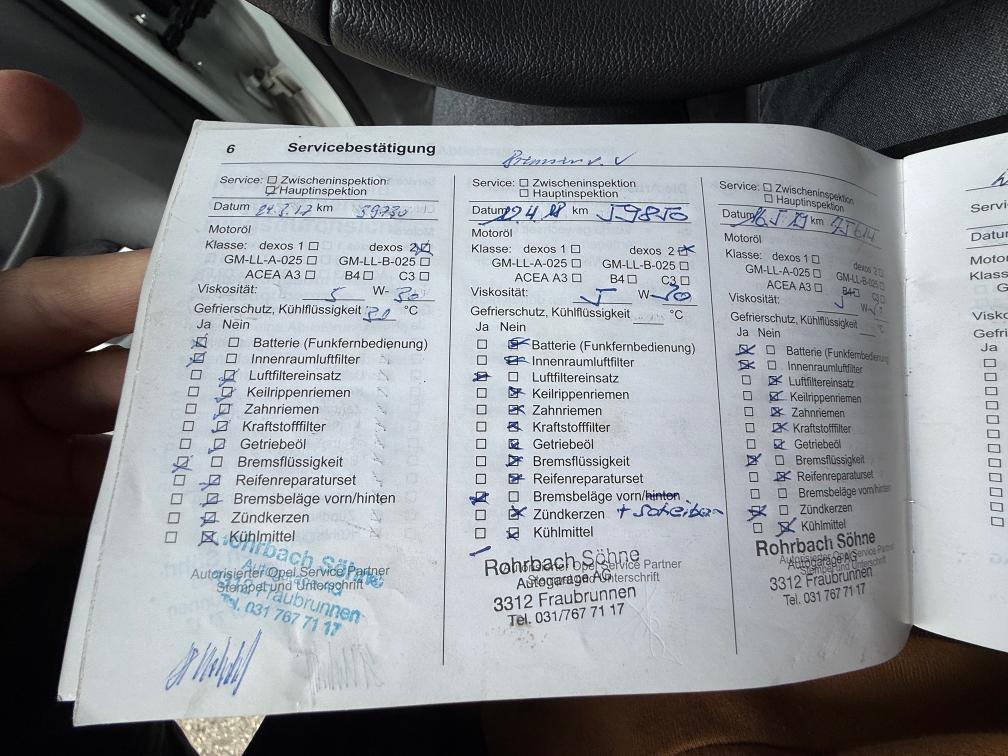 6 Servicebestätigung
Service: Zwischeninspektion
Hauptinspektion
Datum km
Motoröl
Klasse: dexos 1 dexos 2
GM-LL-A-025 GM-LL-B-025
ACEA A3 B4 C3
Viskosität: 5 W- 30
Gefrierschutz, Kühlflüssigkeit °C
Ja Nein
Batterie (Funkfernbedienung)
Innenraumluftfilter
Luftfiltereinsatz
Keilrippenriemen
Zahnriemen
Kraftstofffilter
Getriebeöl
Bremsflüssigkeit
Reifenreparaturset
Bremsbeläge vorn/hinten
Zündkerzen
Kühlmittel
Rohrbach Söhne
Autorisierter Opel Service Partner
Stempel und Unterschrift
Fraubrunnen
Tel. 031 767 71 17
Service: Zwischeninspektion
Hauptinspektion
Datum km 59850
Motoröl
Klasse: dexos 1 dexos 2
GM-LL-A-025 GM-LL-B-025
ACEA A3 B4 C3
Viskosität: 5 W- 30
Gefrierschutz, Kühlflüssigkeit °C
Ja Nein
Batterie (Funkfernbedienung)
Innenraumluftfilter
Luftfiltereinsatz
Keilrippenriemen
Zahnriemen
Kraftstofffilter
Getriebeöl
Bremsflüssigkeit
Reifenreparaturset
Bremsbeläge vorn/hinten
Zündkerzen + Scheiben
Kühlmittel
Rohrbach Söhne
Autorisierter Opel Service Partner
Autogarage AG
Stempel und Unterschrift
3312 Fraubrunnen
Tel. 031/767 71 17
Service: Zwischeninspektion
Hauptinspektion
Datum km
Motoröl
Klasse: dexos 1 dexos 2
GM-LL-A-025 GM-LL-B-025
ACEA A3 B4 C3
Viskosität: 5 W-
Gefrierschutz, Kühlflüssigkeit °C
Ja Nein
Batterie (Funkfernbedienung
Innenraumluftfilter
Luftfiltereinsatz
Keilrippenriemen
Zahnriemen
Kraftstofffilter
Getriebeöl
Bremsflüssigkeit
Reifenreparaturset
Bremsbeläge vorn/hinten
Zündkerzen
Kühlmittel
Rohrbach Söhne
Autorisierter Opel Service Partner
Autogarage AG
Stempel und Unterschrift
3312 Fraubrunnen
Tel. 031/767 71 17
Servic
Datum
Motor
Klass
G
Visko
Gefri
Ja